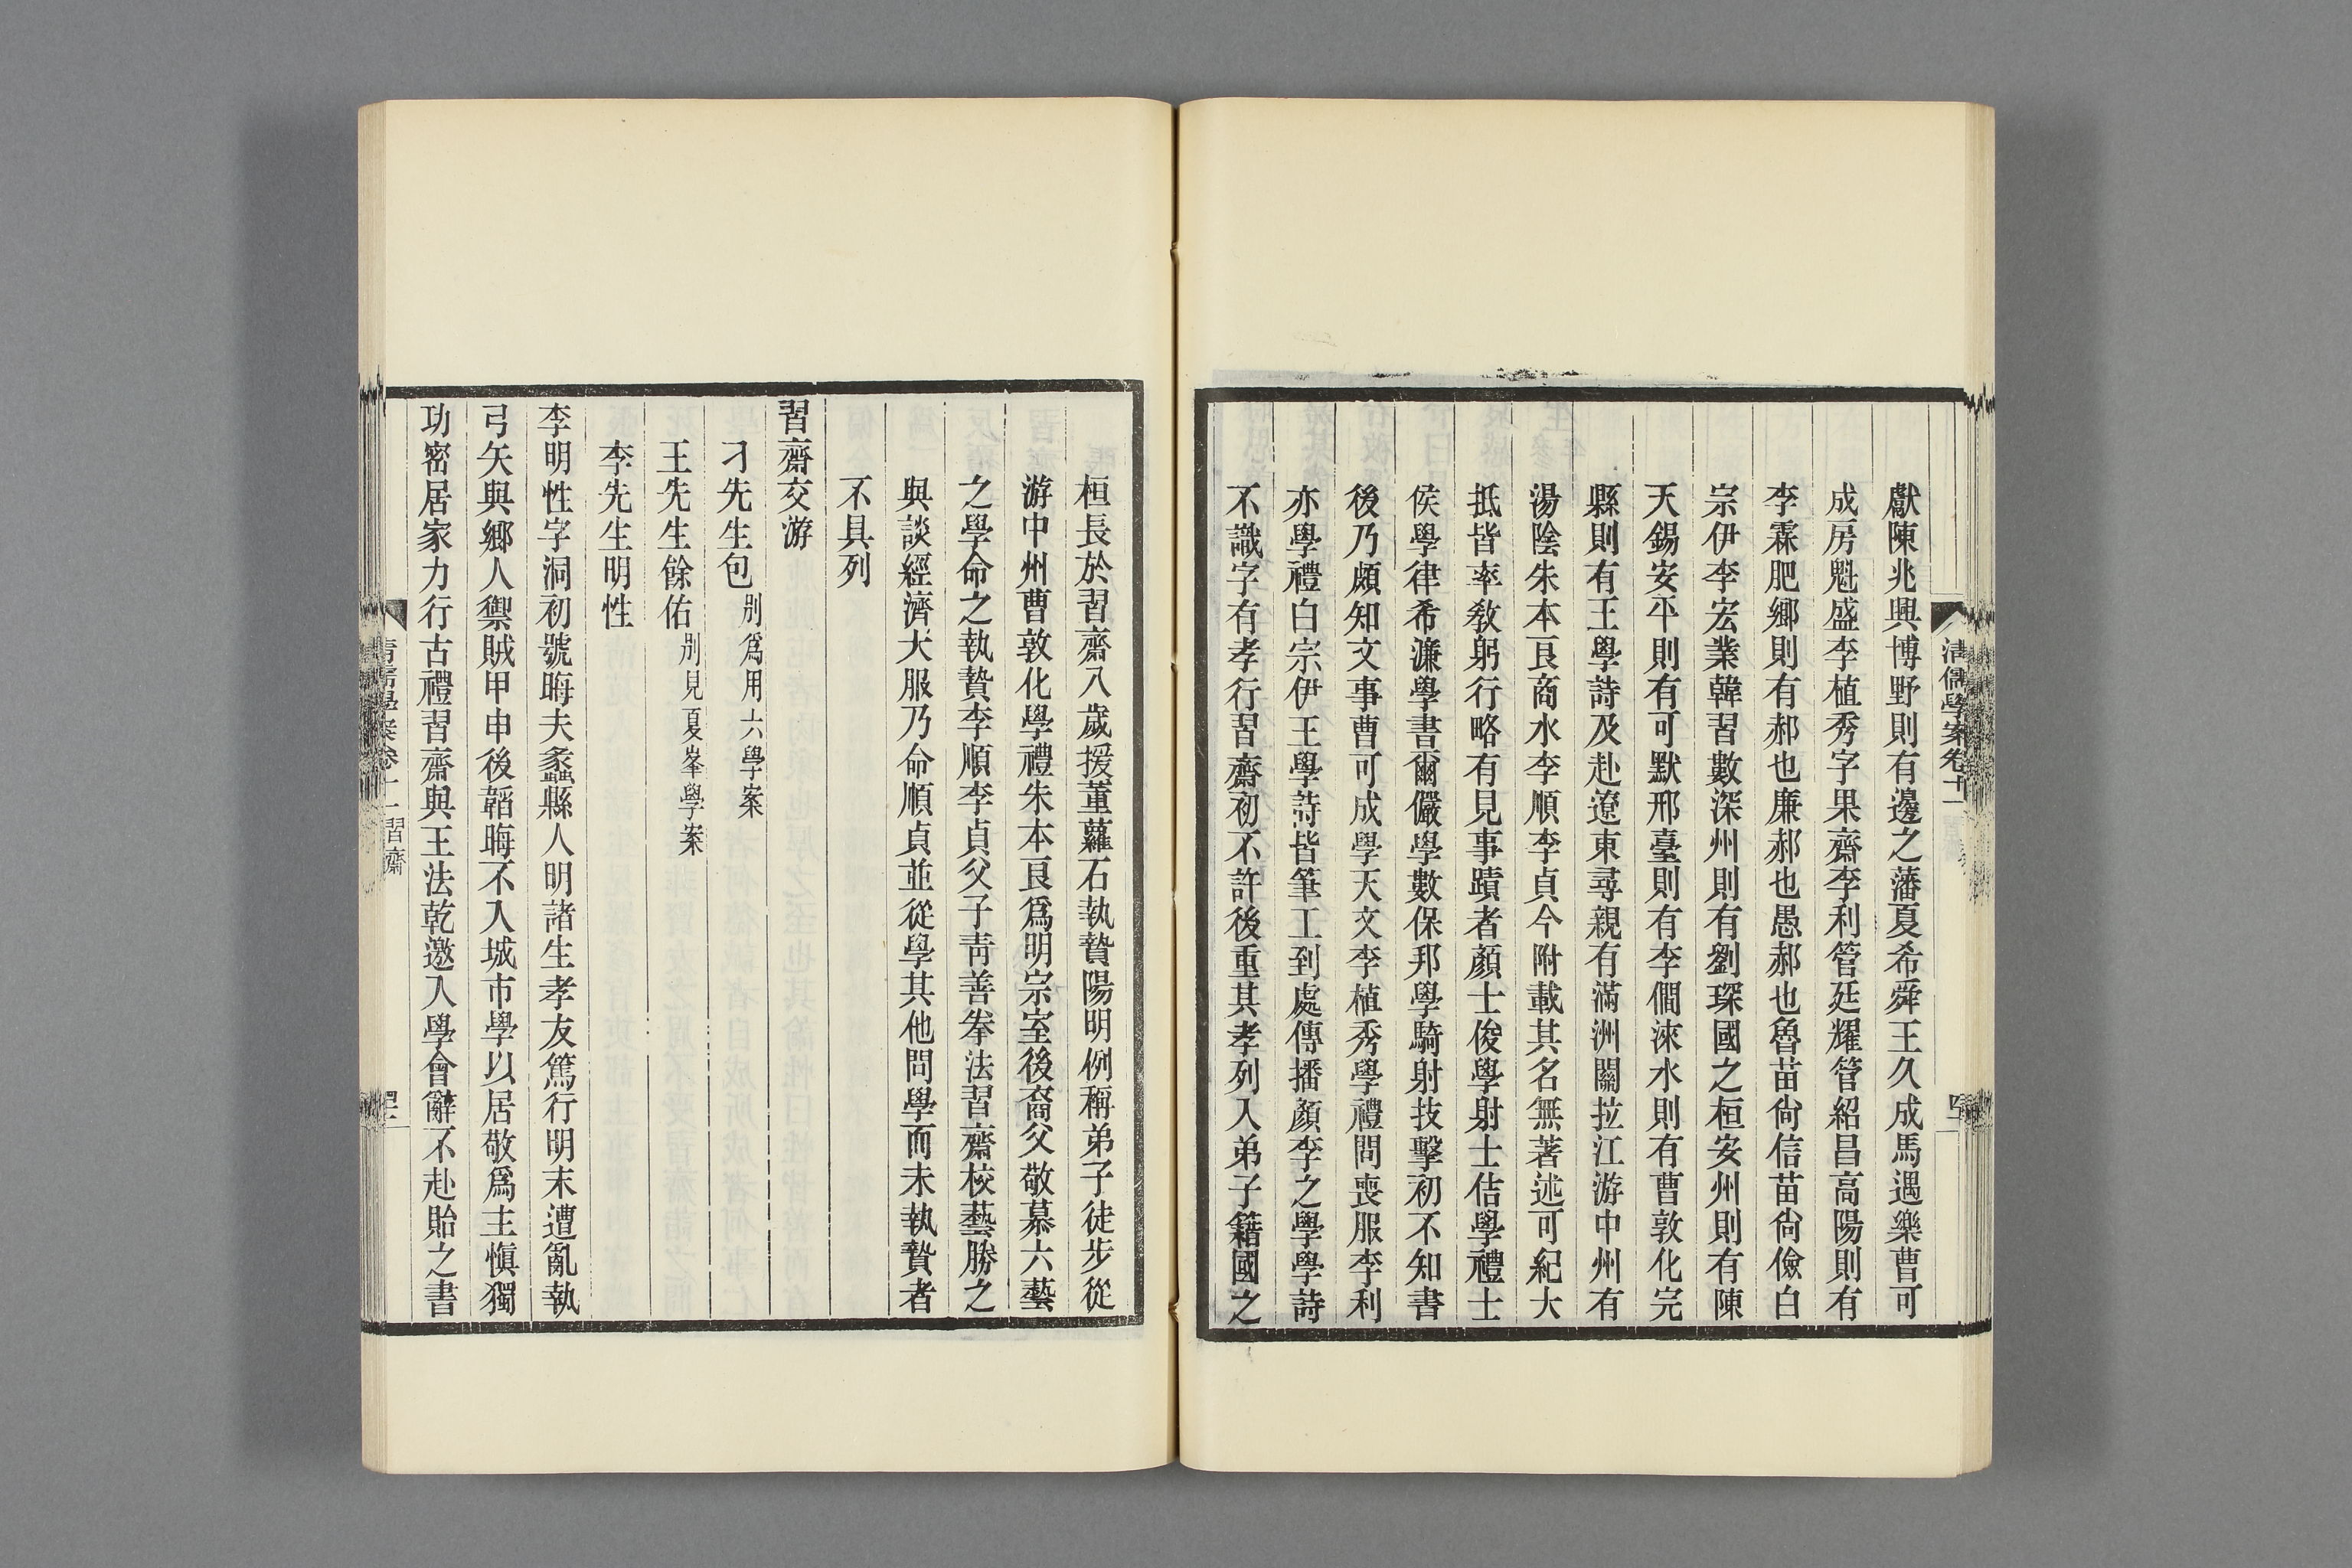 獻陳兆興博野則有邊之藩夏希舜王久成馬遇樂曹可
成房魁盛李植秀字果齋李利管廷耀管紹昌高陽則有
李霖肥鄉則有郝也廉郝也愚郝也魯苗尙信苗尙儉白
宗伊李宏業韓習數深州則有劉琛國之桓安州則有陳
天錫安平則有可默邢臺則有李僩淶水則有曹敦化完
縣則有王學詩及赴遼東尋親有滿洲關拉江游中州有
湯陰朱本良商水李順李貞今附載其名無著述可紀大
抵皆率敎躬行略有見事蹟者顏士俊學射士佶學禮士
侯學律希濂學書爾儼學數保邦學騎射技擊初不知書
後乃頗知文事曹可成學天文李植秀學禮問喪服李利
亦學禮白宗伊王學詩皆筆工到處傳播顏李之學學詩
不識字有孝行習齋初不許後重其孝列入弟子籍國之
清儒學案卷十一
桓長於習齋八歲援董蘿石執贄陽明例稱弟子徒步從
游中州曹敦化學禮朱本良爲明宗室後裔父敬慕六藝
之學命之執贄李順李貞父子靑善拳法習齋校藝勝之
與談經濟大服乃命順貞並從學其他問學而未執贄者
不具列
習齋交游
刁先生包別爲用六學案
王先生餘佑別見夏峯學案
李先生明性
李明性字洞初號晦夫蠡縣人明諸生孝友篤行明末遭亂執
弓矢與鄉人禦賊甲申後韜晦不入城市學以居敬爲主愼獨
功密居家力行古禮習齋與王法乾邀入學會辭不赴貽之書
清儒學案卷十一 習齋